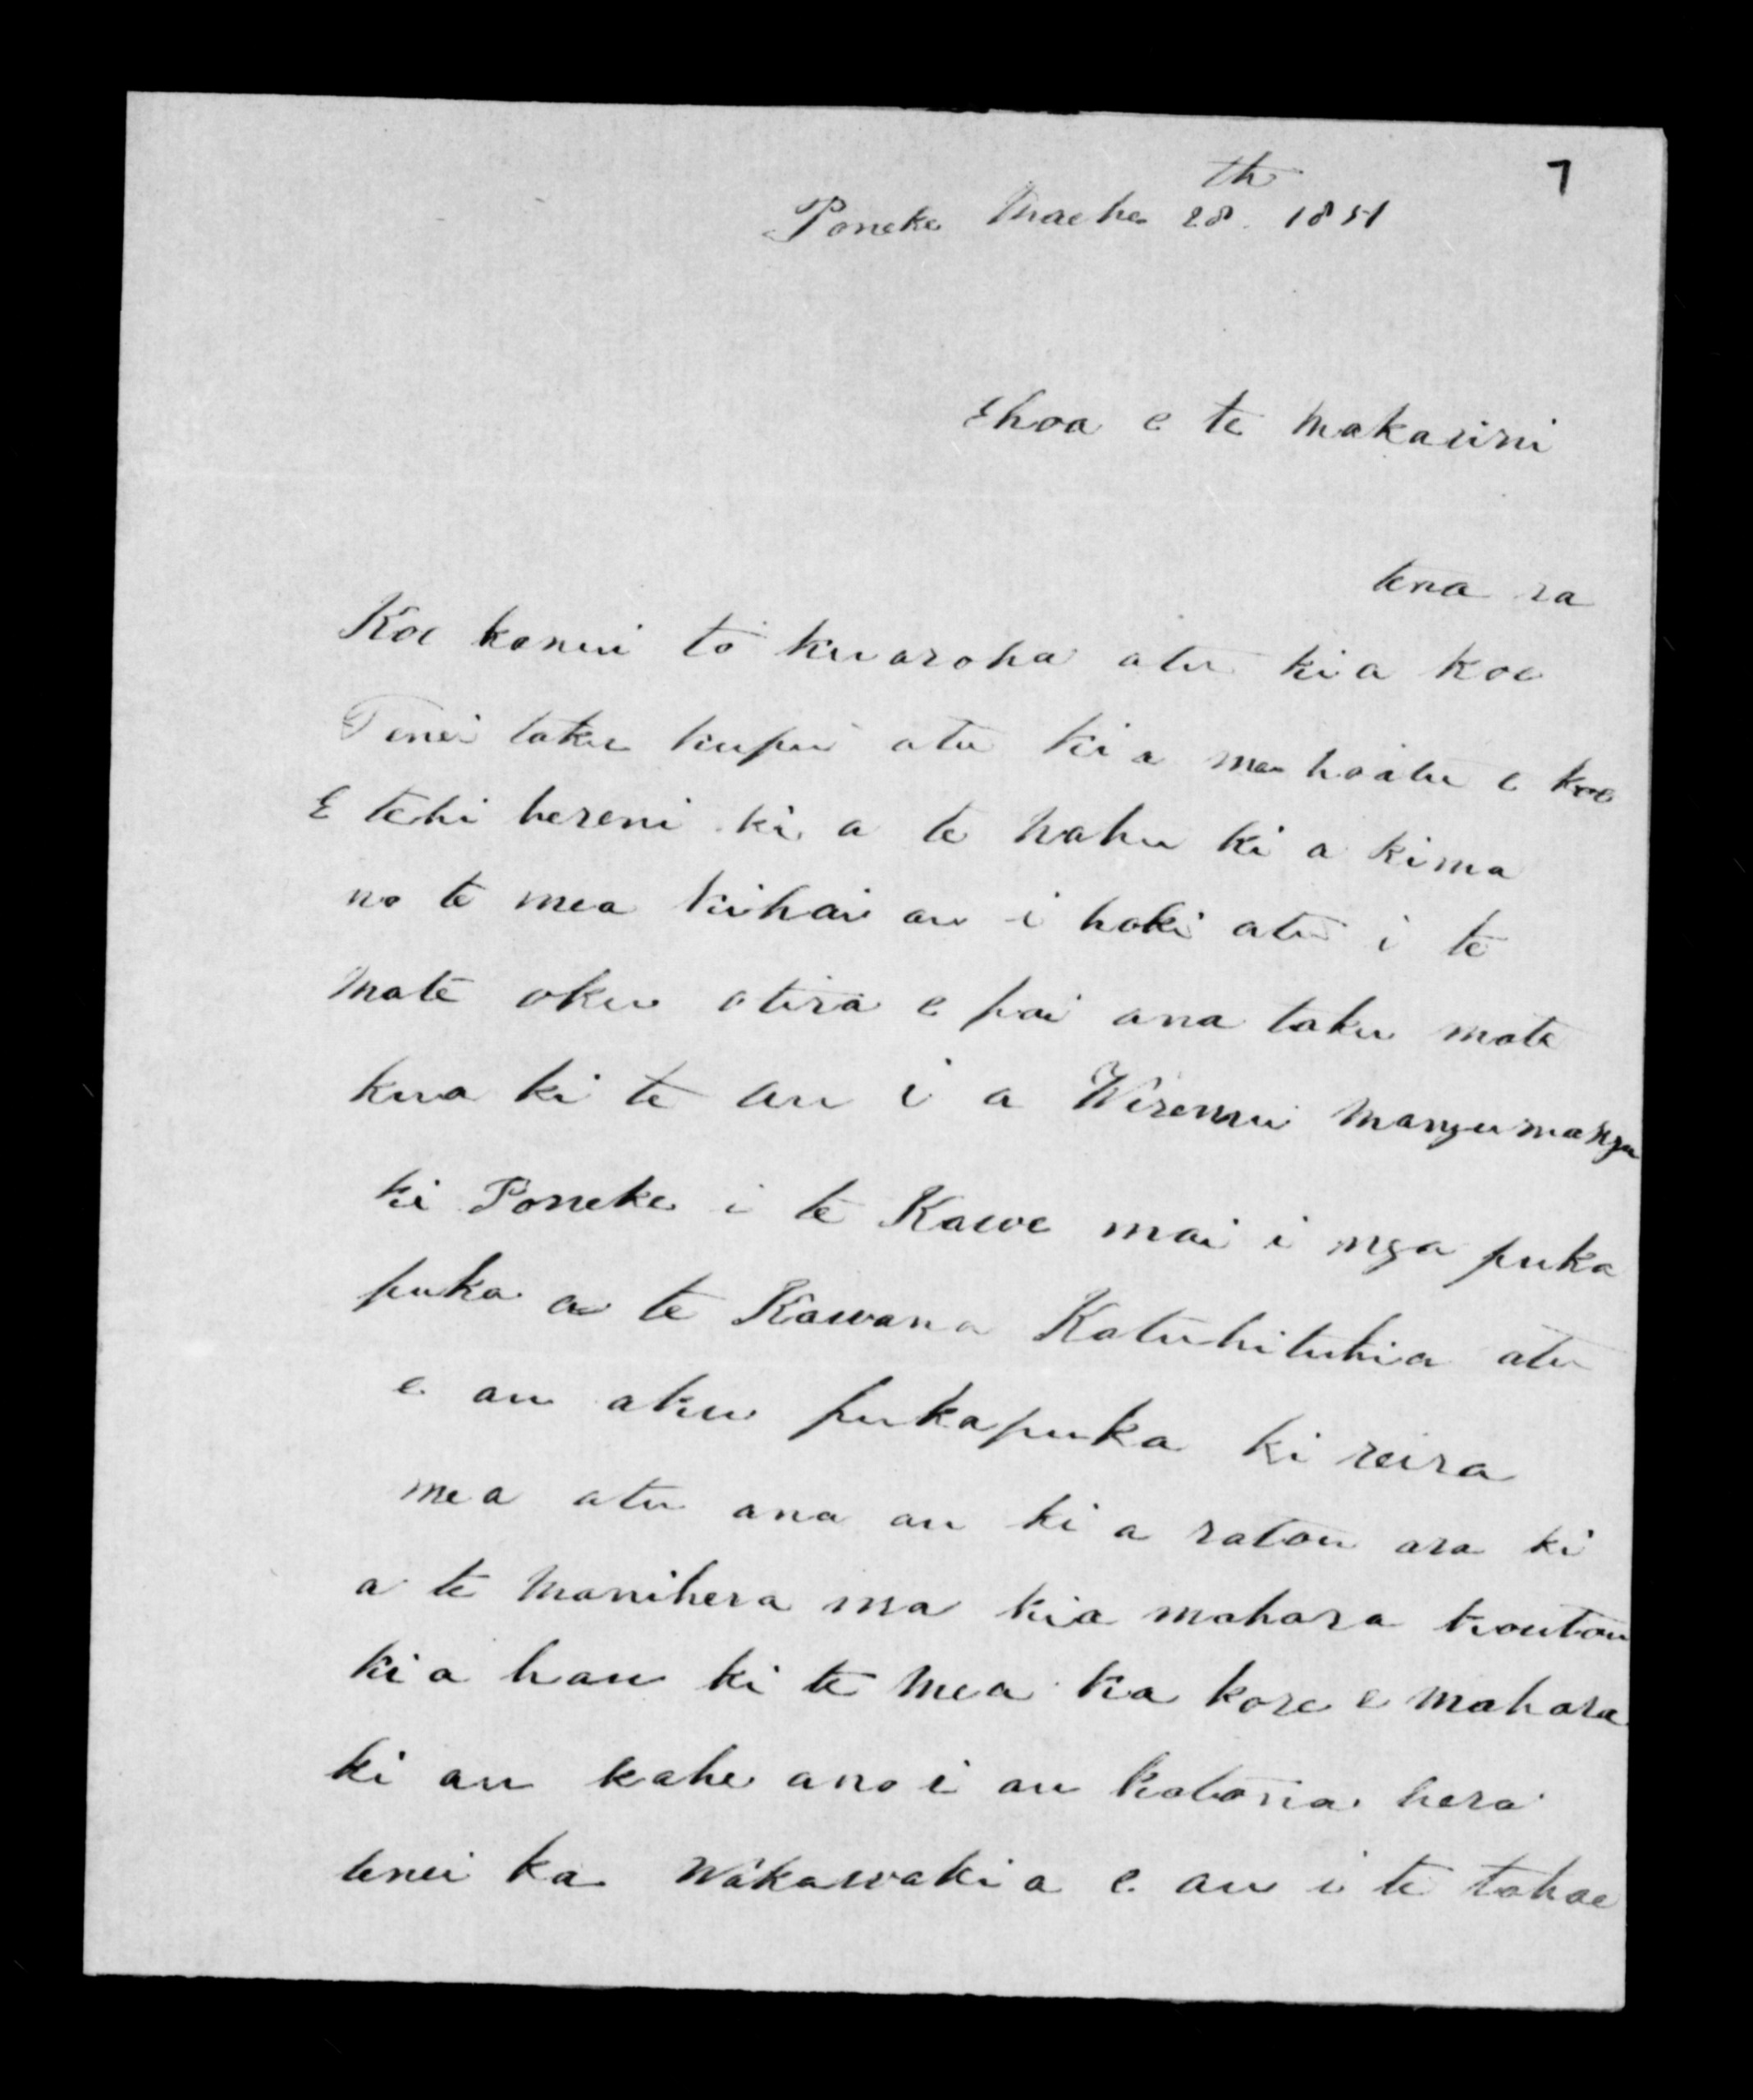 7
Poneke Maehe 28th 1851
Ehoa e te Makarini
tena ra
Koe kanui to kuaroha atu kia koe
Tenei taku kupu atu kia mau hoatu e koe
E tehi hereni ki a te Wahu ki a kima
no te mea kihai au i hoki atu i te
Mate oku otira e pai ana taku mate
kua ki te au i a Wiremu Mangumangu
ki Poneke i te Kawe mai i nga puka
puka a te Kawana Katuhituhia atu
e au aku pukapuka ki reira
mea atu ana au ki a ratou ara ki
a te Manihera ma kia mahara koutou
ki a hau ki te mea ka kore e mahara
ki au kahe ano i au katonia hera
tenei ka Wakawakia e au i te tahae